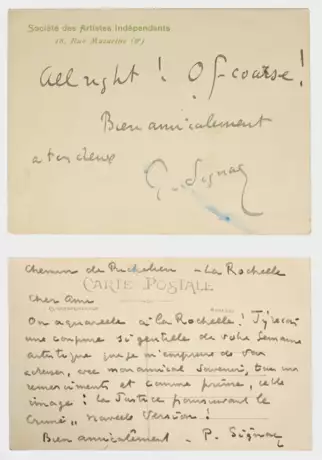 Société des Artistes Indépendants
18, Rue Mazarine (6e)
All right ! Of coarse !
Bien amicalement
à tous deux
P. Signac
Chemin de Richelieu - La Rochelle
CARTE POSTALE
Cher Ami
On aquarelle à La Rochelle ! J'y reçois
une coupure si gentille de votre Semaine
artistique que je m'empresse de vous
adresser, avec mon amical souvenir, tous mes
remerciments et comme prime, cette
image : La Justice poursuivant le
Crime, nouvelle version !
Bien amicalement - P. Signac